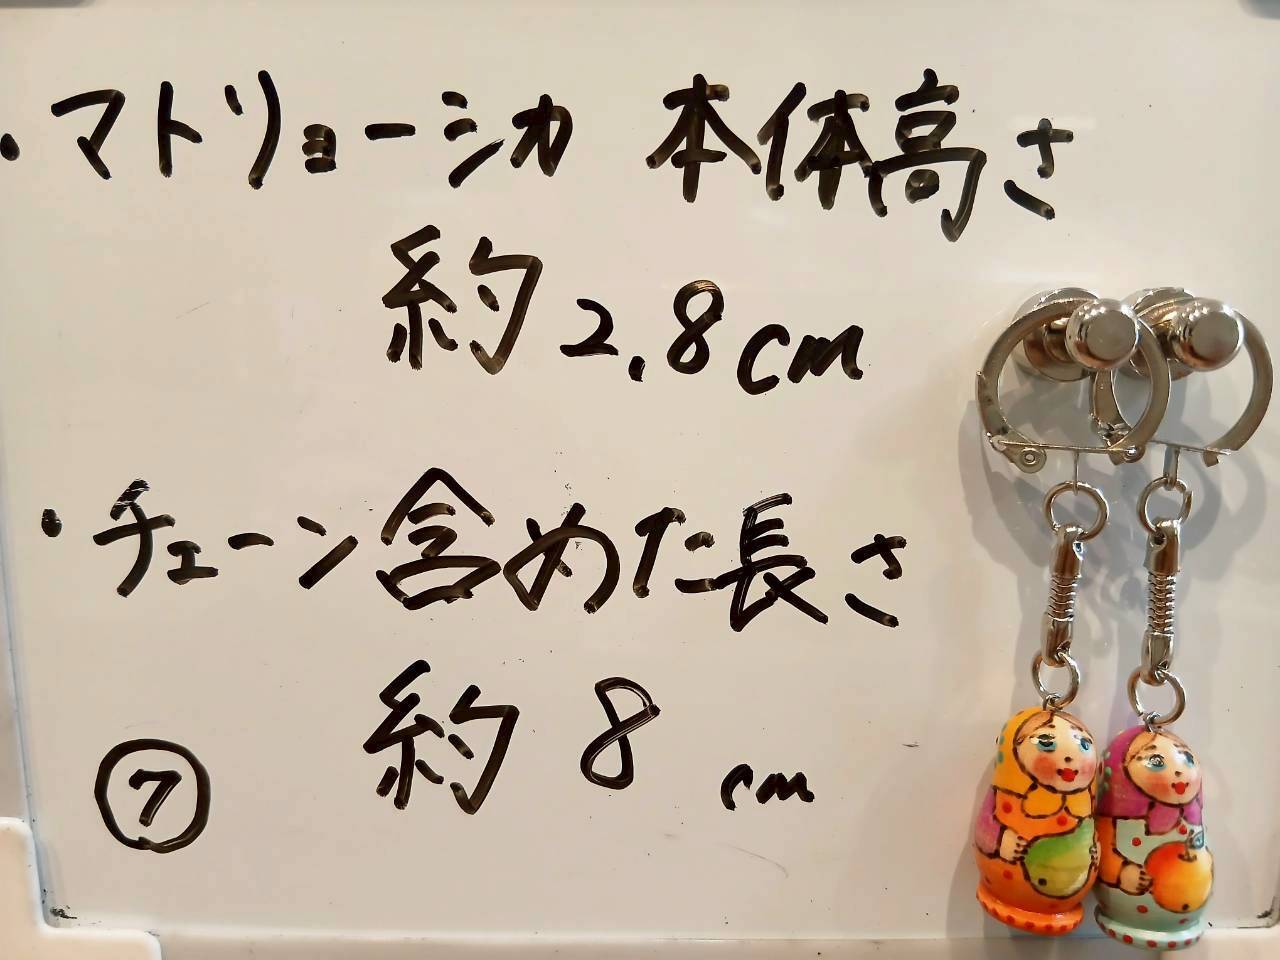 ・マトリョーシカ 本体高さ
約2.8cm
・チェーン含めた長さ
約8cm
⑦